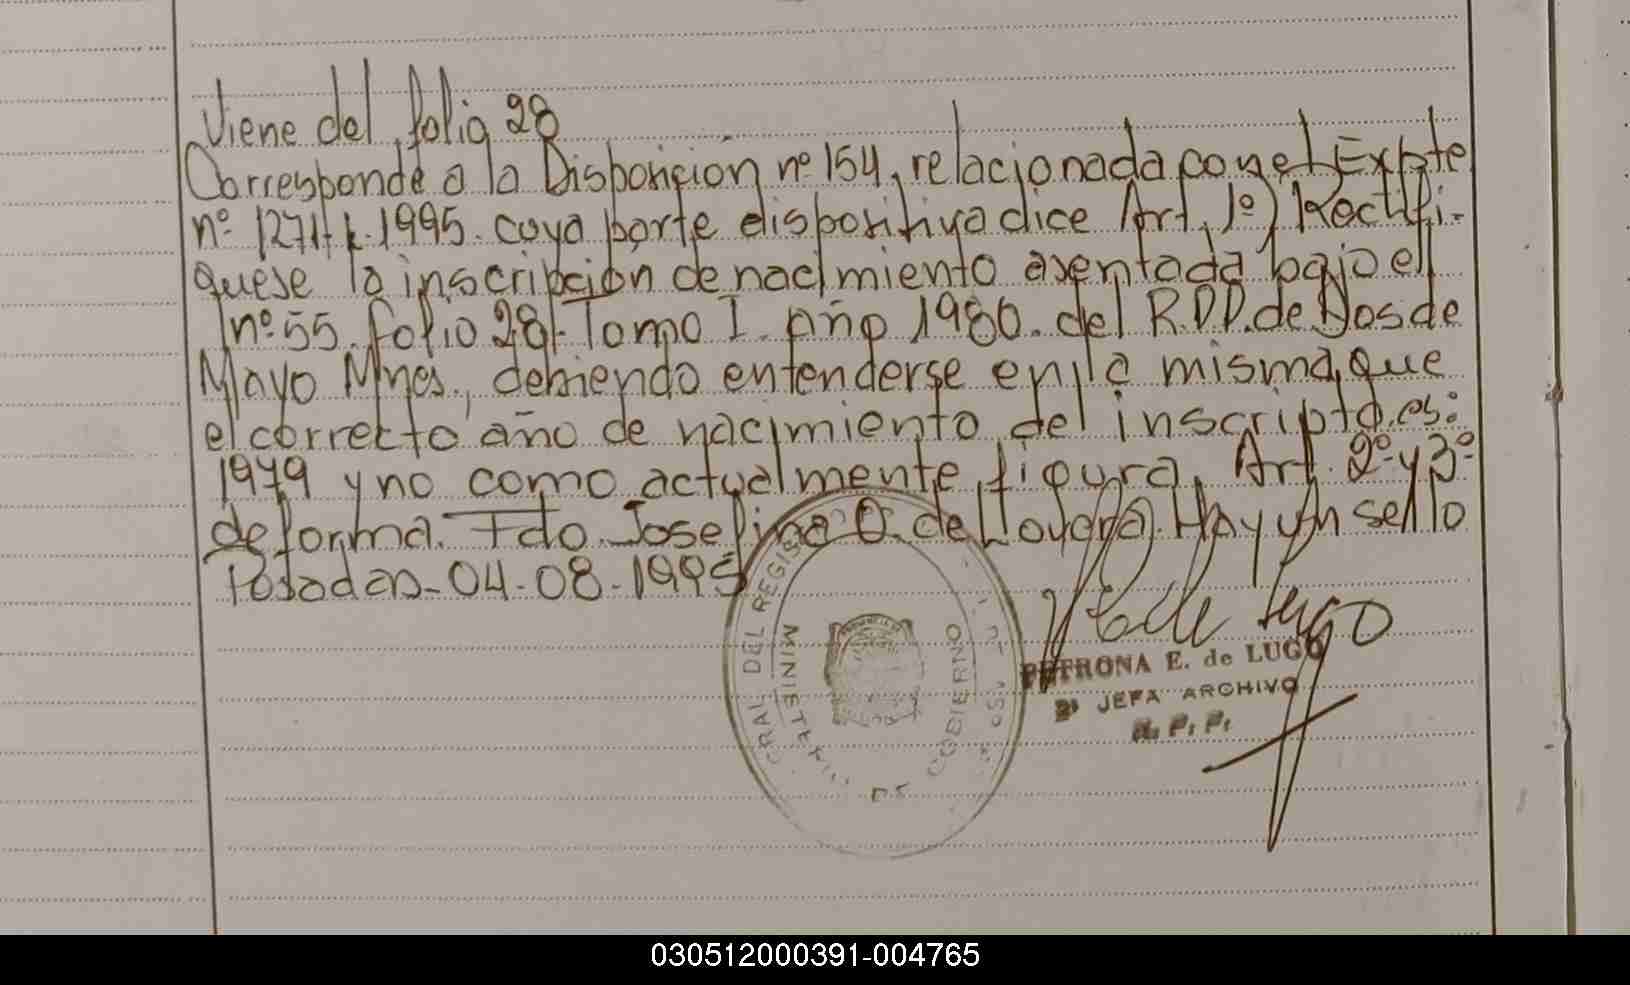 Viene del folio 28
Corresponde a la Disposición nº 154, relacionada con el Expte
nº 1271-L-1995. cuya parte dispositiva dice Art. 1º) Rectifi-
quese la inscripción de nacimiento asentada bajo el
nº 55. folio 28. Tomo I. año 1980. del R.P.P. de Dos de
Mayo Mnes., debiendo entenderse en la misma, que
el correcto año de nacimiento del inscripto, es:
1979 y no como actualmente figura. Art. 2º y 3º
de forma. Fdo. Josefina O. de Lovera. Hay un sello
Posadas-04-08-1995
RAL DEL REGIS
MINISTERIO
DE
GOBIERNO
PETRONA E. de LUGO
JEFA ARCHIVO
R. P. P.
030512000391-004765